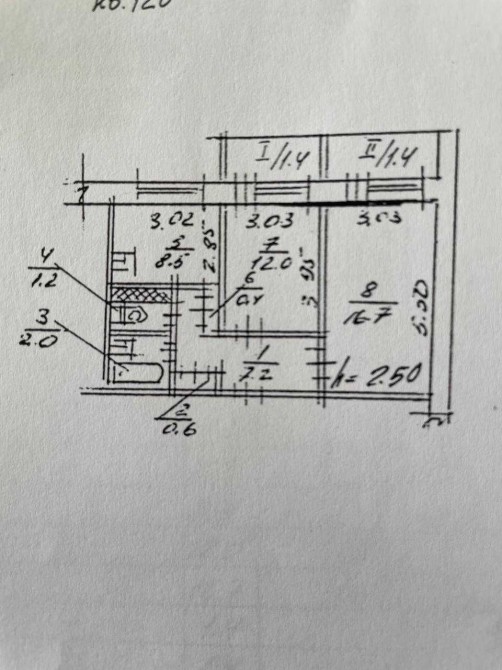 кв.120
I/1.4
II/1.4
3.02
3.03
3.03
5
8.5
2.85
7
12.0
4
1.2
6
0.4
3.95
8
16.7
5.50
3
2.0
1
7.2
h=2.50
2
0.6